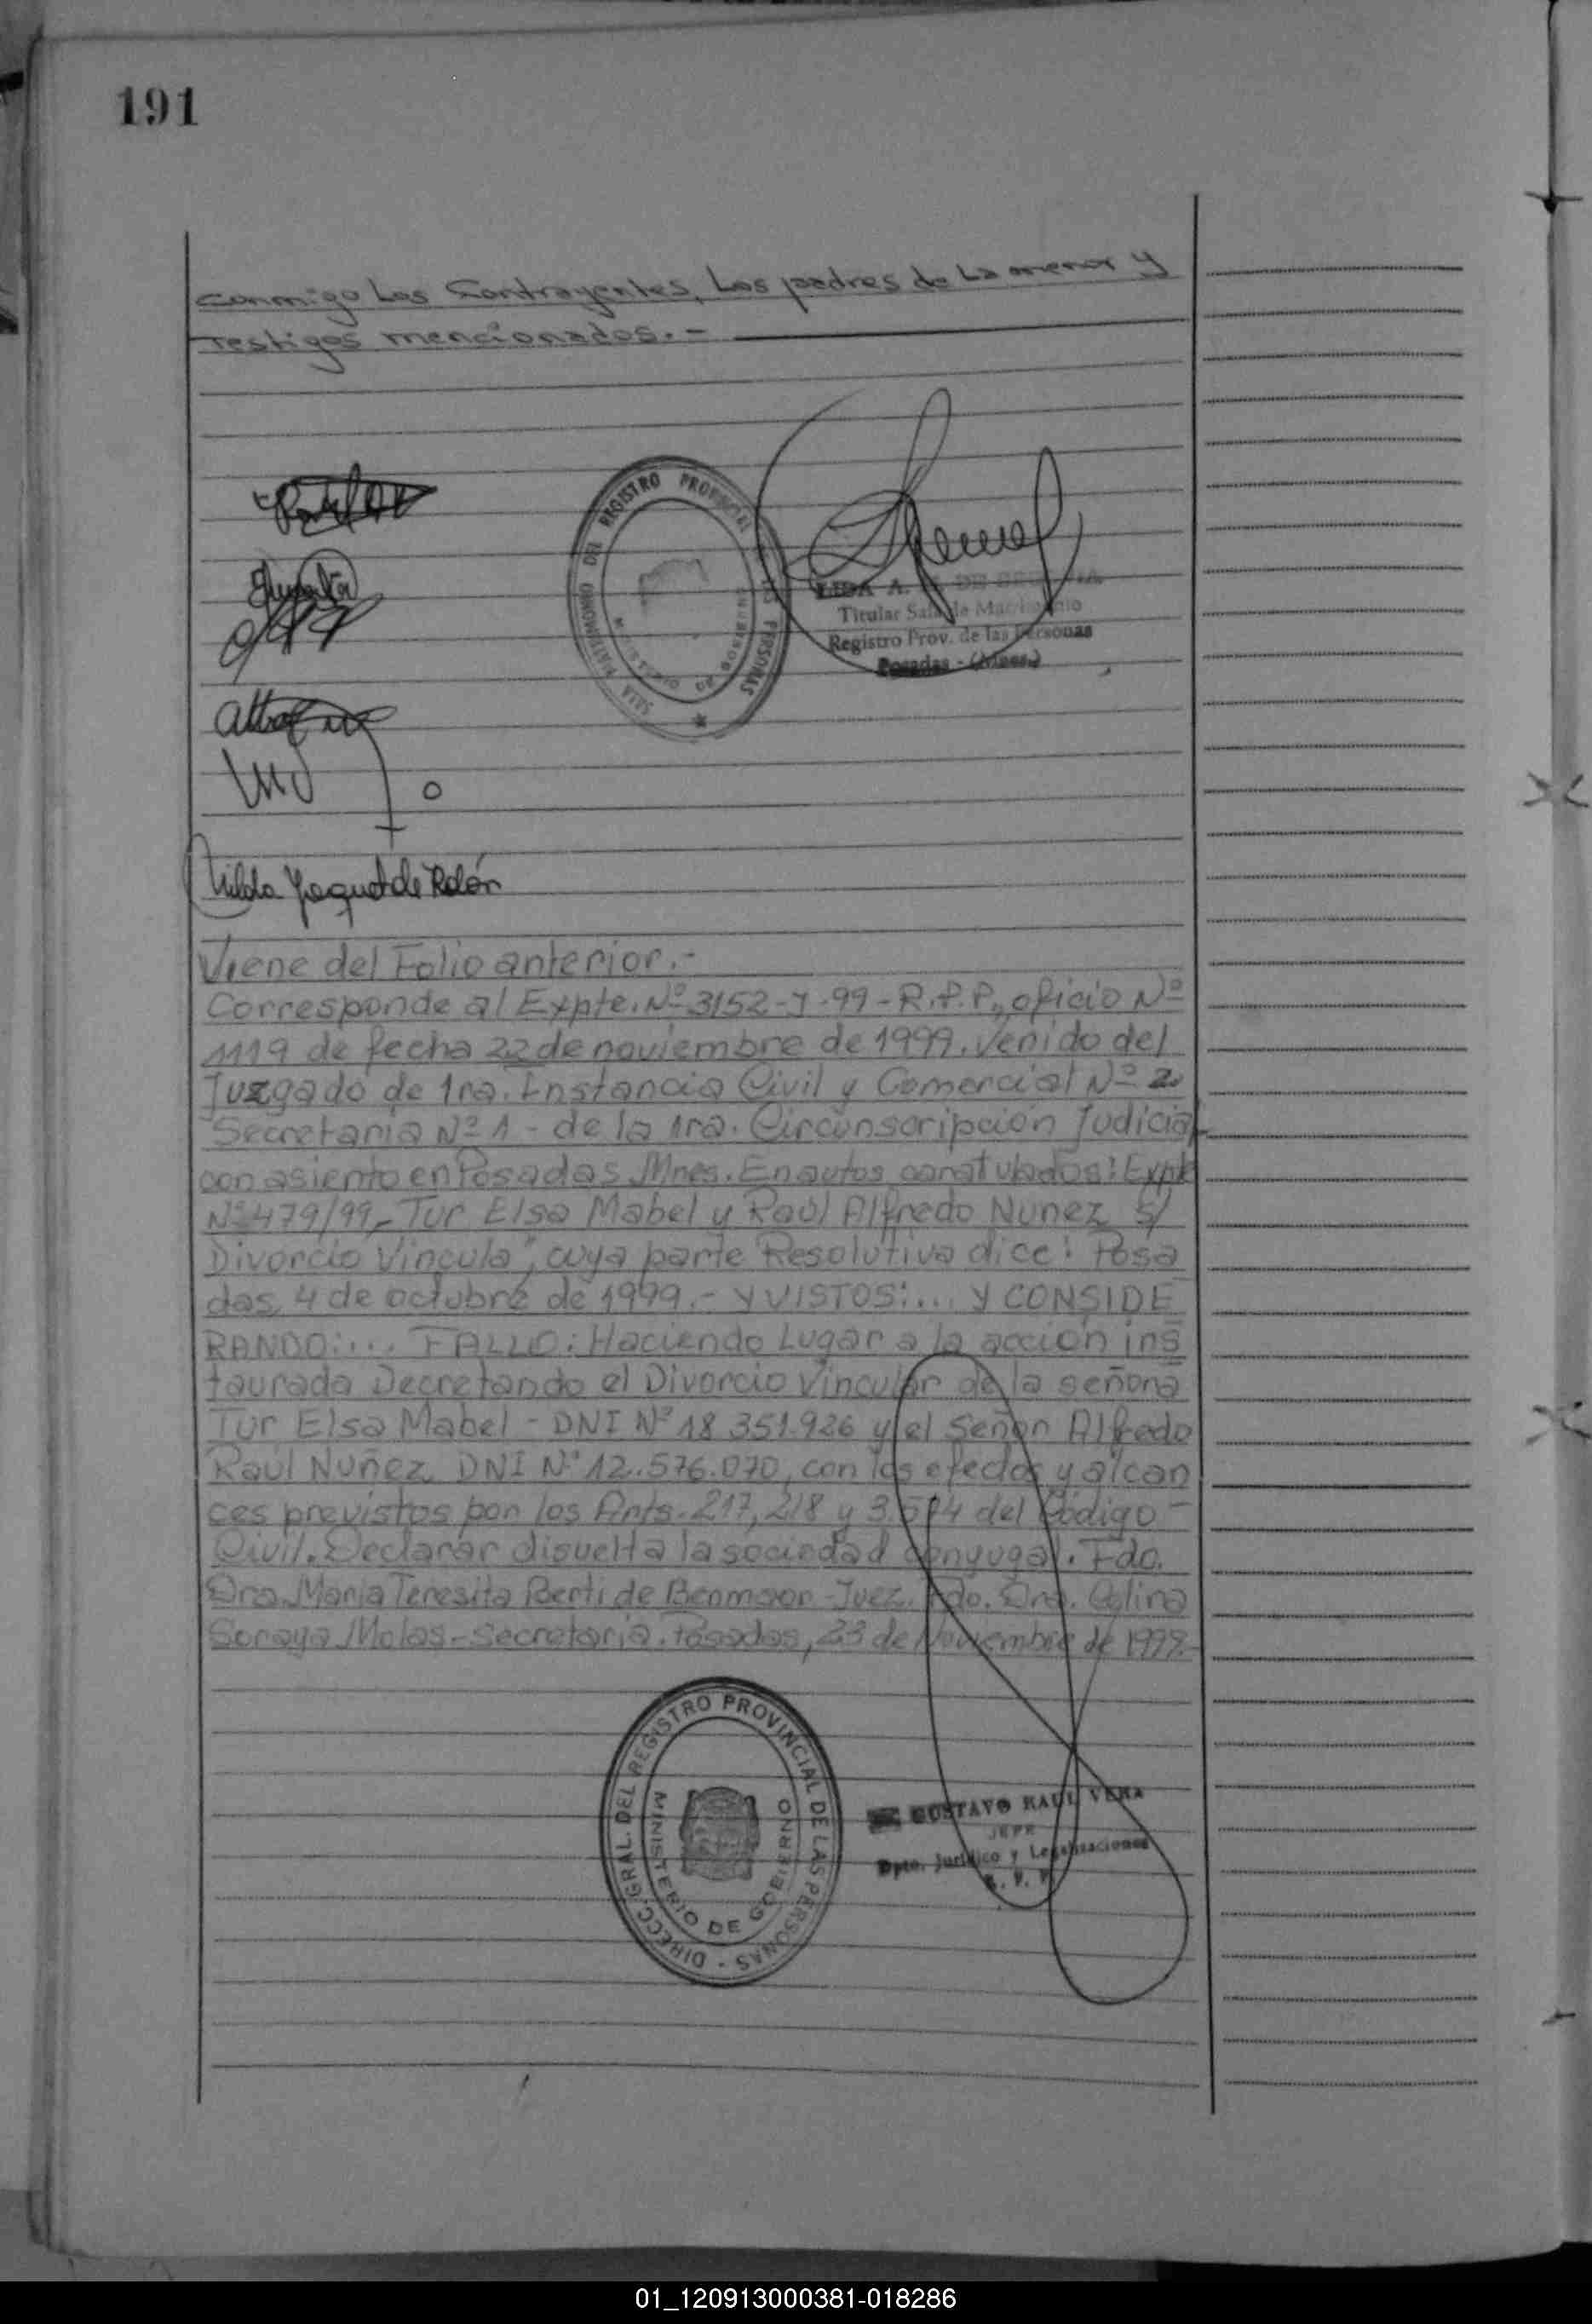 191
conmigo Los Contrayentes, Los padres de La menor y
Testigos mencionados.-
REGISTRO PROVINCIAL
PERSONAS
LIDA A. DE
Titular Sala de Matrimonio
Registro Prov. de las Personas
Posadas - (Mnes.)
Hilda de Rolón
Viene del Folio anterior.-
Corresponde al Expte. Nº 3152-J-99-R.P.P., oficio Nº
1119 de fecha 22 de noviembre de 1999. Venido del
Juzgado de 1ra. Instancia Civil y Comercial Nº 2
Secretaria Nº 1 - de la 1ra. Circunscripción Judicial
con asiento en Posadas Mnes. En autos caratulados: Expte
Nº 479/99,- Tur Elsa Mabel y Raúl Alfredo Nunez S/
Divorcio Vincula", cuya parte Resolutiva dice: Posa
das, 4 de octubre de 1999.- Y VISTOS:... Y CONSIDE
RANDO:... FALLO: Haciendo Lugar a la acción ins
taurada Decretando el Divorcio Vincular de la señora
Tur Elsa Mabel - DNI Nº 18 351.926 y el Señor Alfredo
Raúl Nuñez DNI Nº 12.576.070, con los efectos y alcan
ces previstos por los Arts. 217, 218 y 3.574 del Código
Civil. Declarar disuelta la sociedad conyugal. Fdo.
Dra. María Teresita Berti de Fdo. Dra.
Soraya Molas - Secretaria. Posadas, 23 de Noviembre de 1999.-
DIRECC. GRAL. DEL REGISTRO PROVINCIAL DE LAS PERSONAS -
MINISTERIO DE GOBIERNO
GUSTAVO RAUL VERA
JEFE
Dpto. Jurídico y Legalizaciones
R. P. P.
01_120913000381-018286